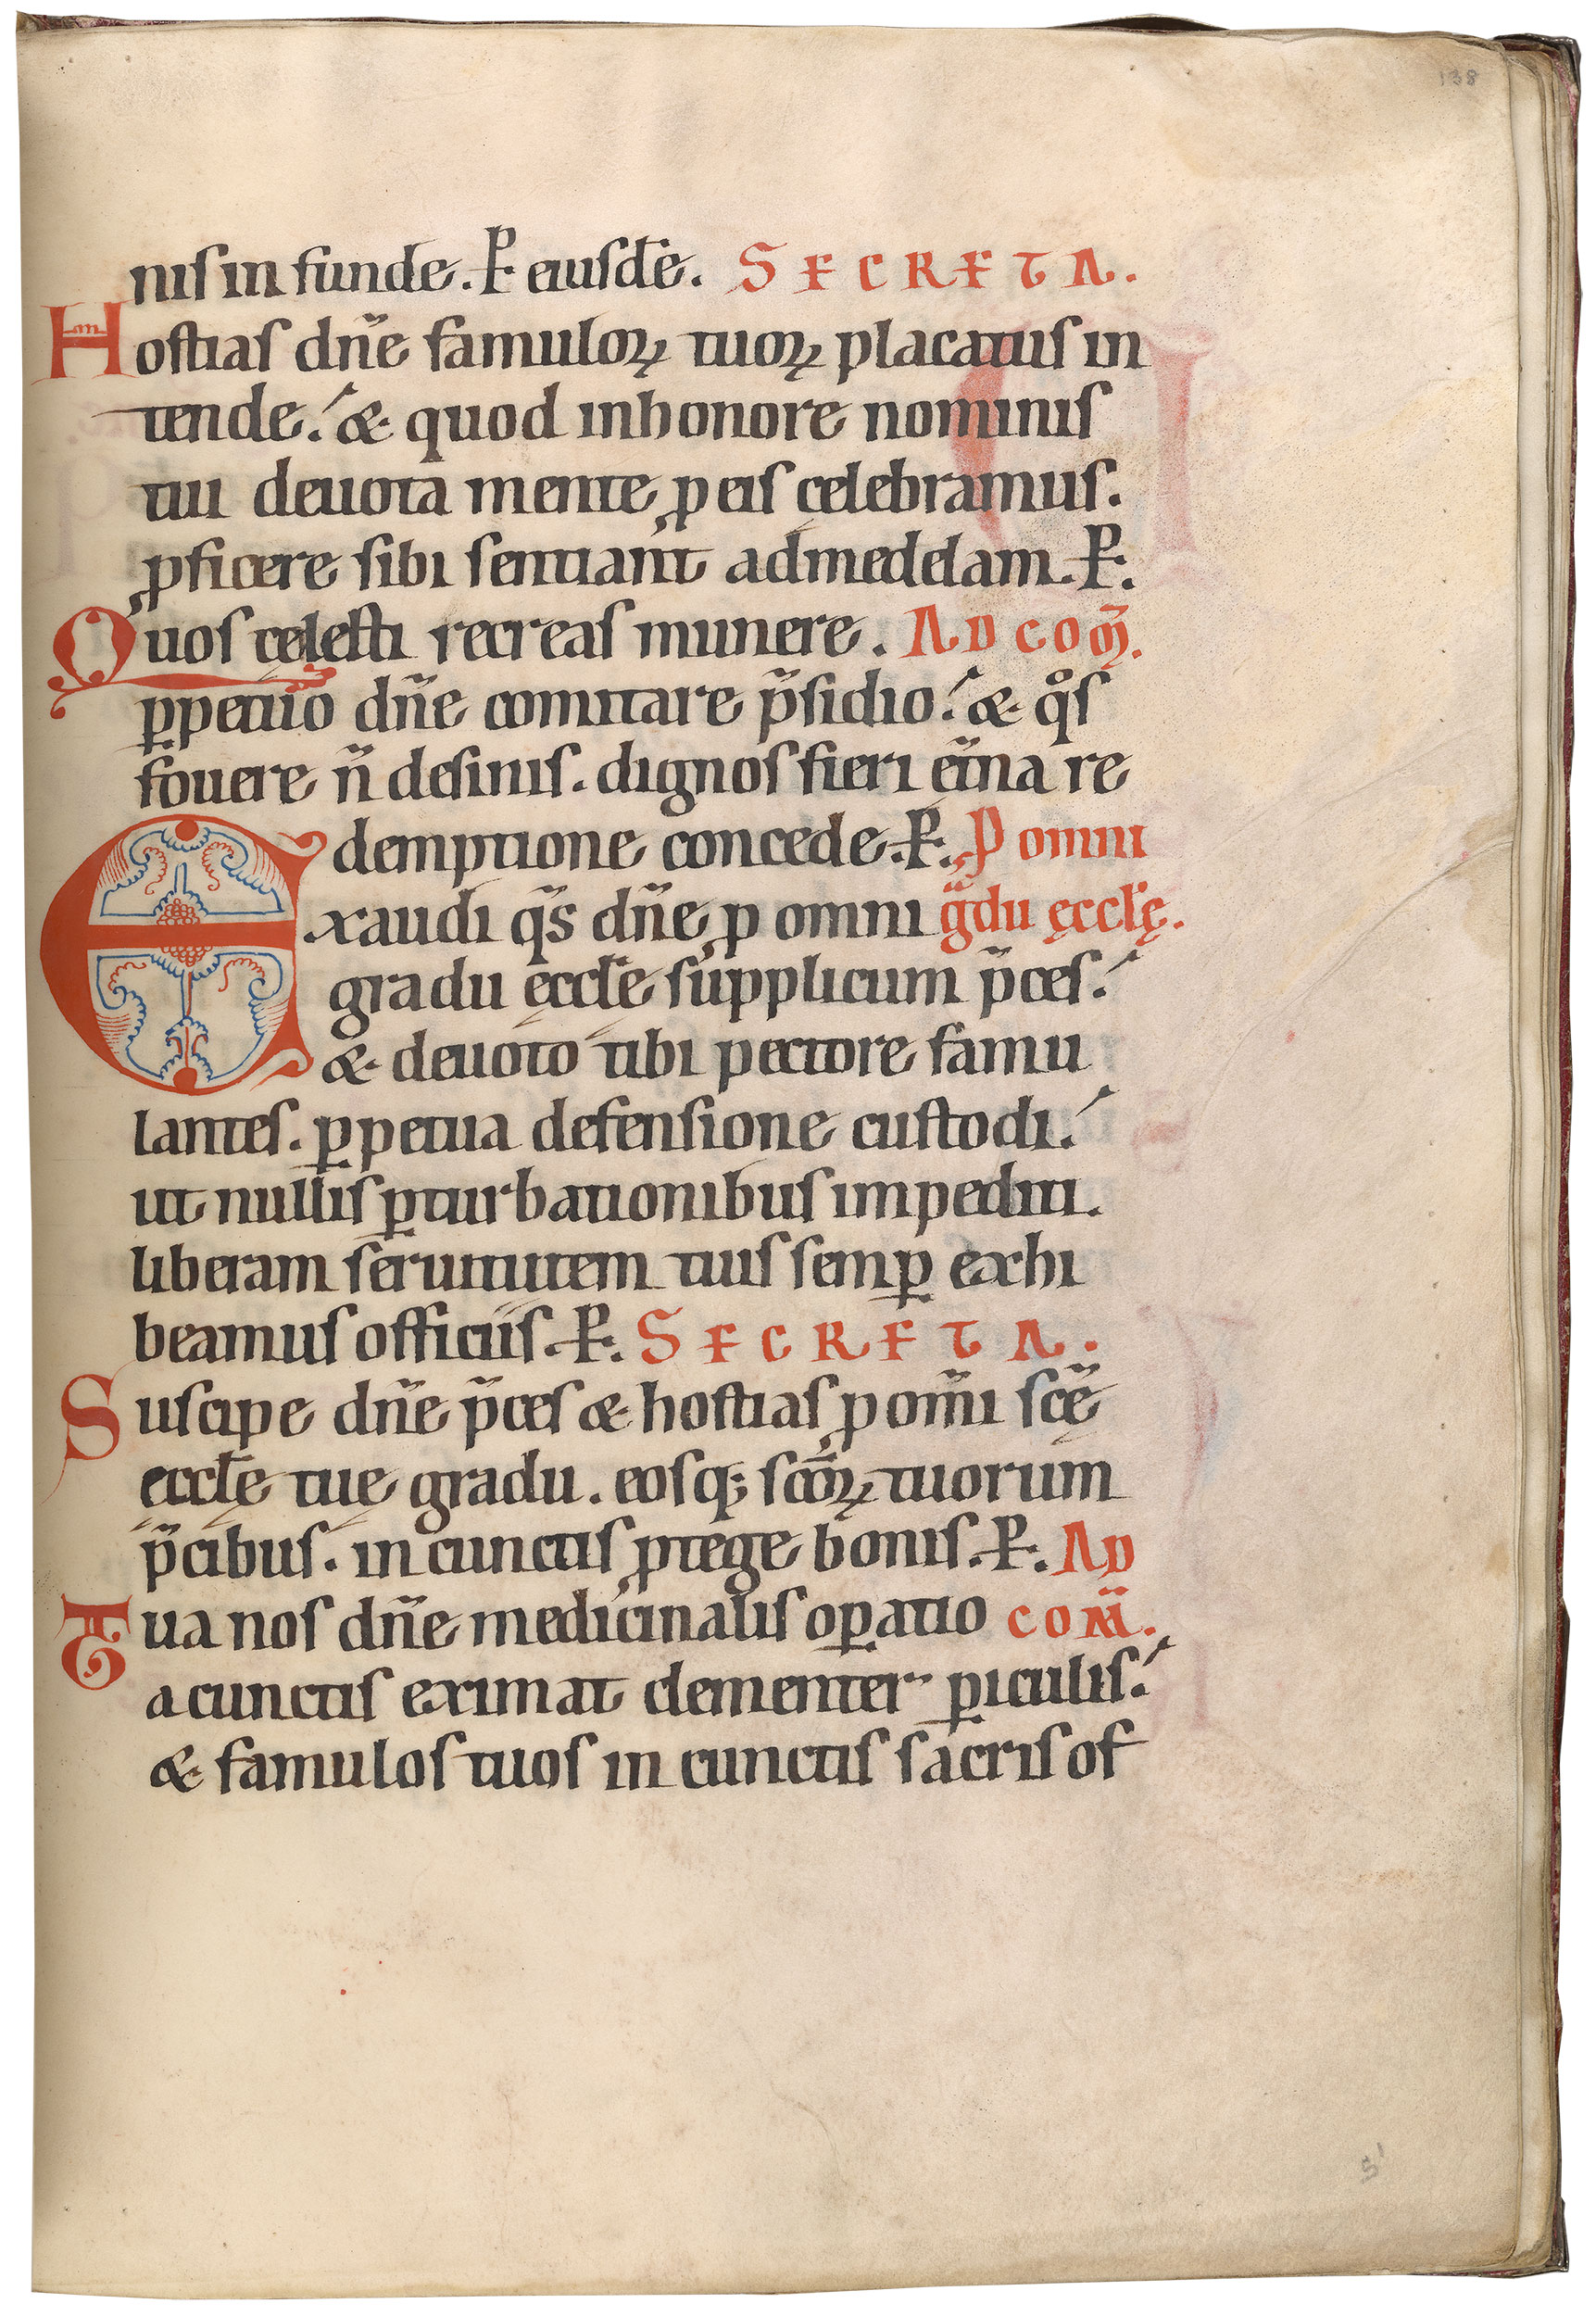 138
nis in funde. P eiusdē. SECRETA.
Hostias dn̄e famuloꝝ tuoꝝ placatus in
tende. & quod inhonore nominis
tui deuota mente ꝓ eis celebramus.
ꝓficere sibi sentiant admedelam. P.
Quos cęlesti recreas munere. AD COM̄.
ꝑpetuo dn̄e comitare p̄sidio. & qͦs
fouere n̄ desinis. dignos fieri et̄na re
demptione concede. P. ꝓ omni
Exaudi qs̄ dn̄e ꝓ omni g̃du ęcclę̄.
gradu ęccl̄ę supplicum p̄ces.
& deuoto tibi pectore famu
lantes. ꝑpetua defensione custodi.
ut nullis ꝑturbationibus impediti.
liberam seruitutem tuis semꝑ exhi
beamus officiis. P. SECRETA.
Suscipe dn̄e p̄ces & hostias ꝓ om̄i scę̄
ęccl̄ę tuę gradu. eosq; sc̄oꝝ tuorum
p̄cibus. in cunctis ꝓtege bonis. P. AD
Tua nos dn̄e medicinalis oꝑatio COM̄.
a cunctis eximat clementer ꝑiculis.
& famulos tuos in cunctis sacris of